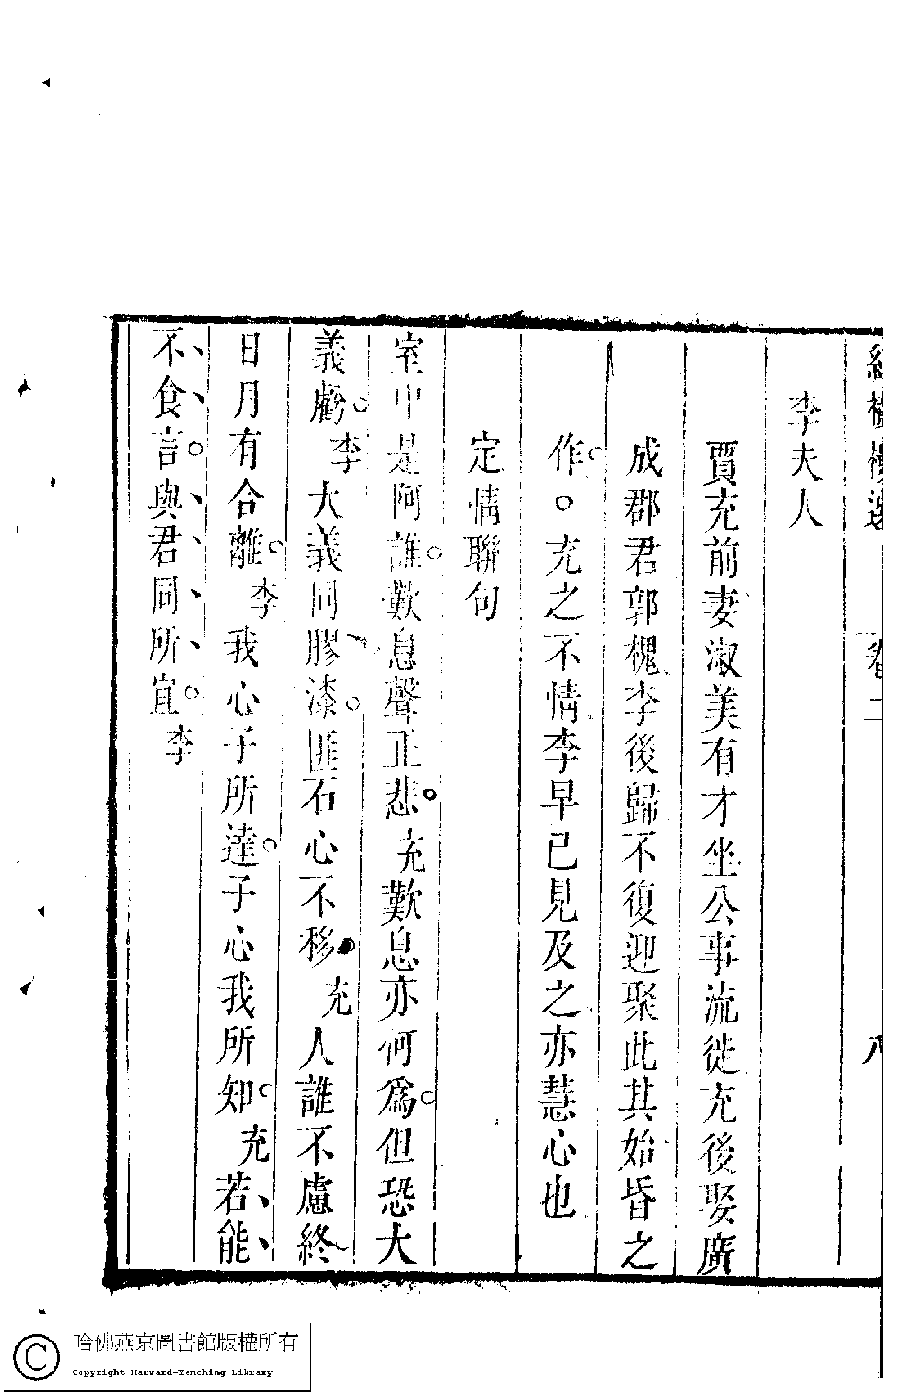 卷二 八
李夫人
賈充前妻淑美有才坐公事流徙充後娶廣
成郡君郭槐李後歸不復迎聚此其始昏之
作。充之不情李早已見及之亦慧心也
定情聯句
室中是阿誰。歎息聲正悲。充歎息亦何爲。但恐大
義虧。李大義同膠漆。匪石心不移。充人誰不慮終
日月有合離。李我心子所達。子心我所知。充若能
不食言。與君同所宜。李
哈佛燕京圖書館版權所有
Copyright Harvard-Yenching Library